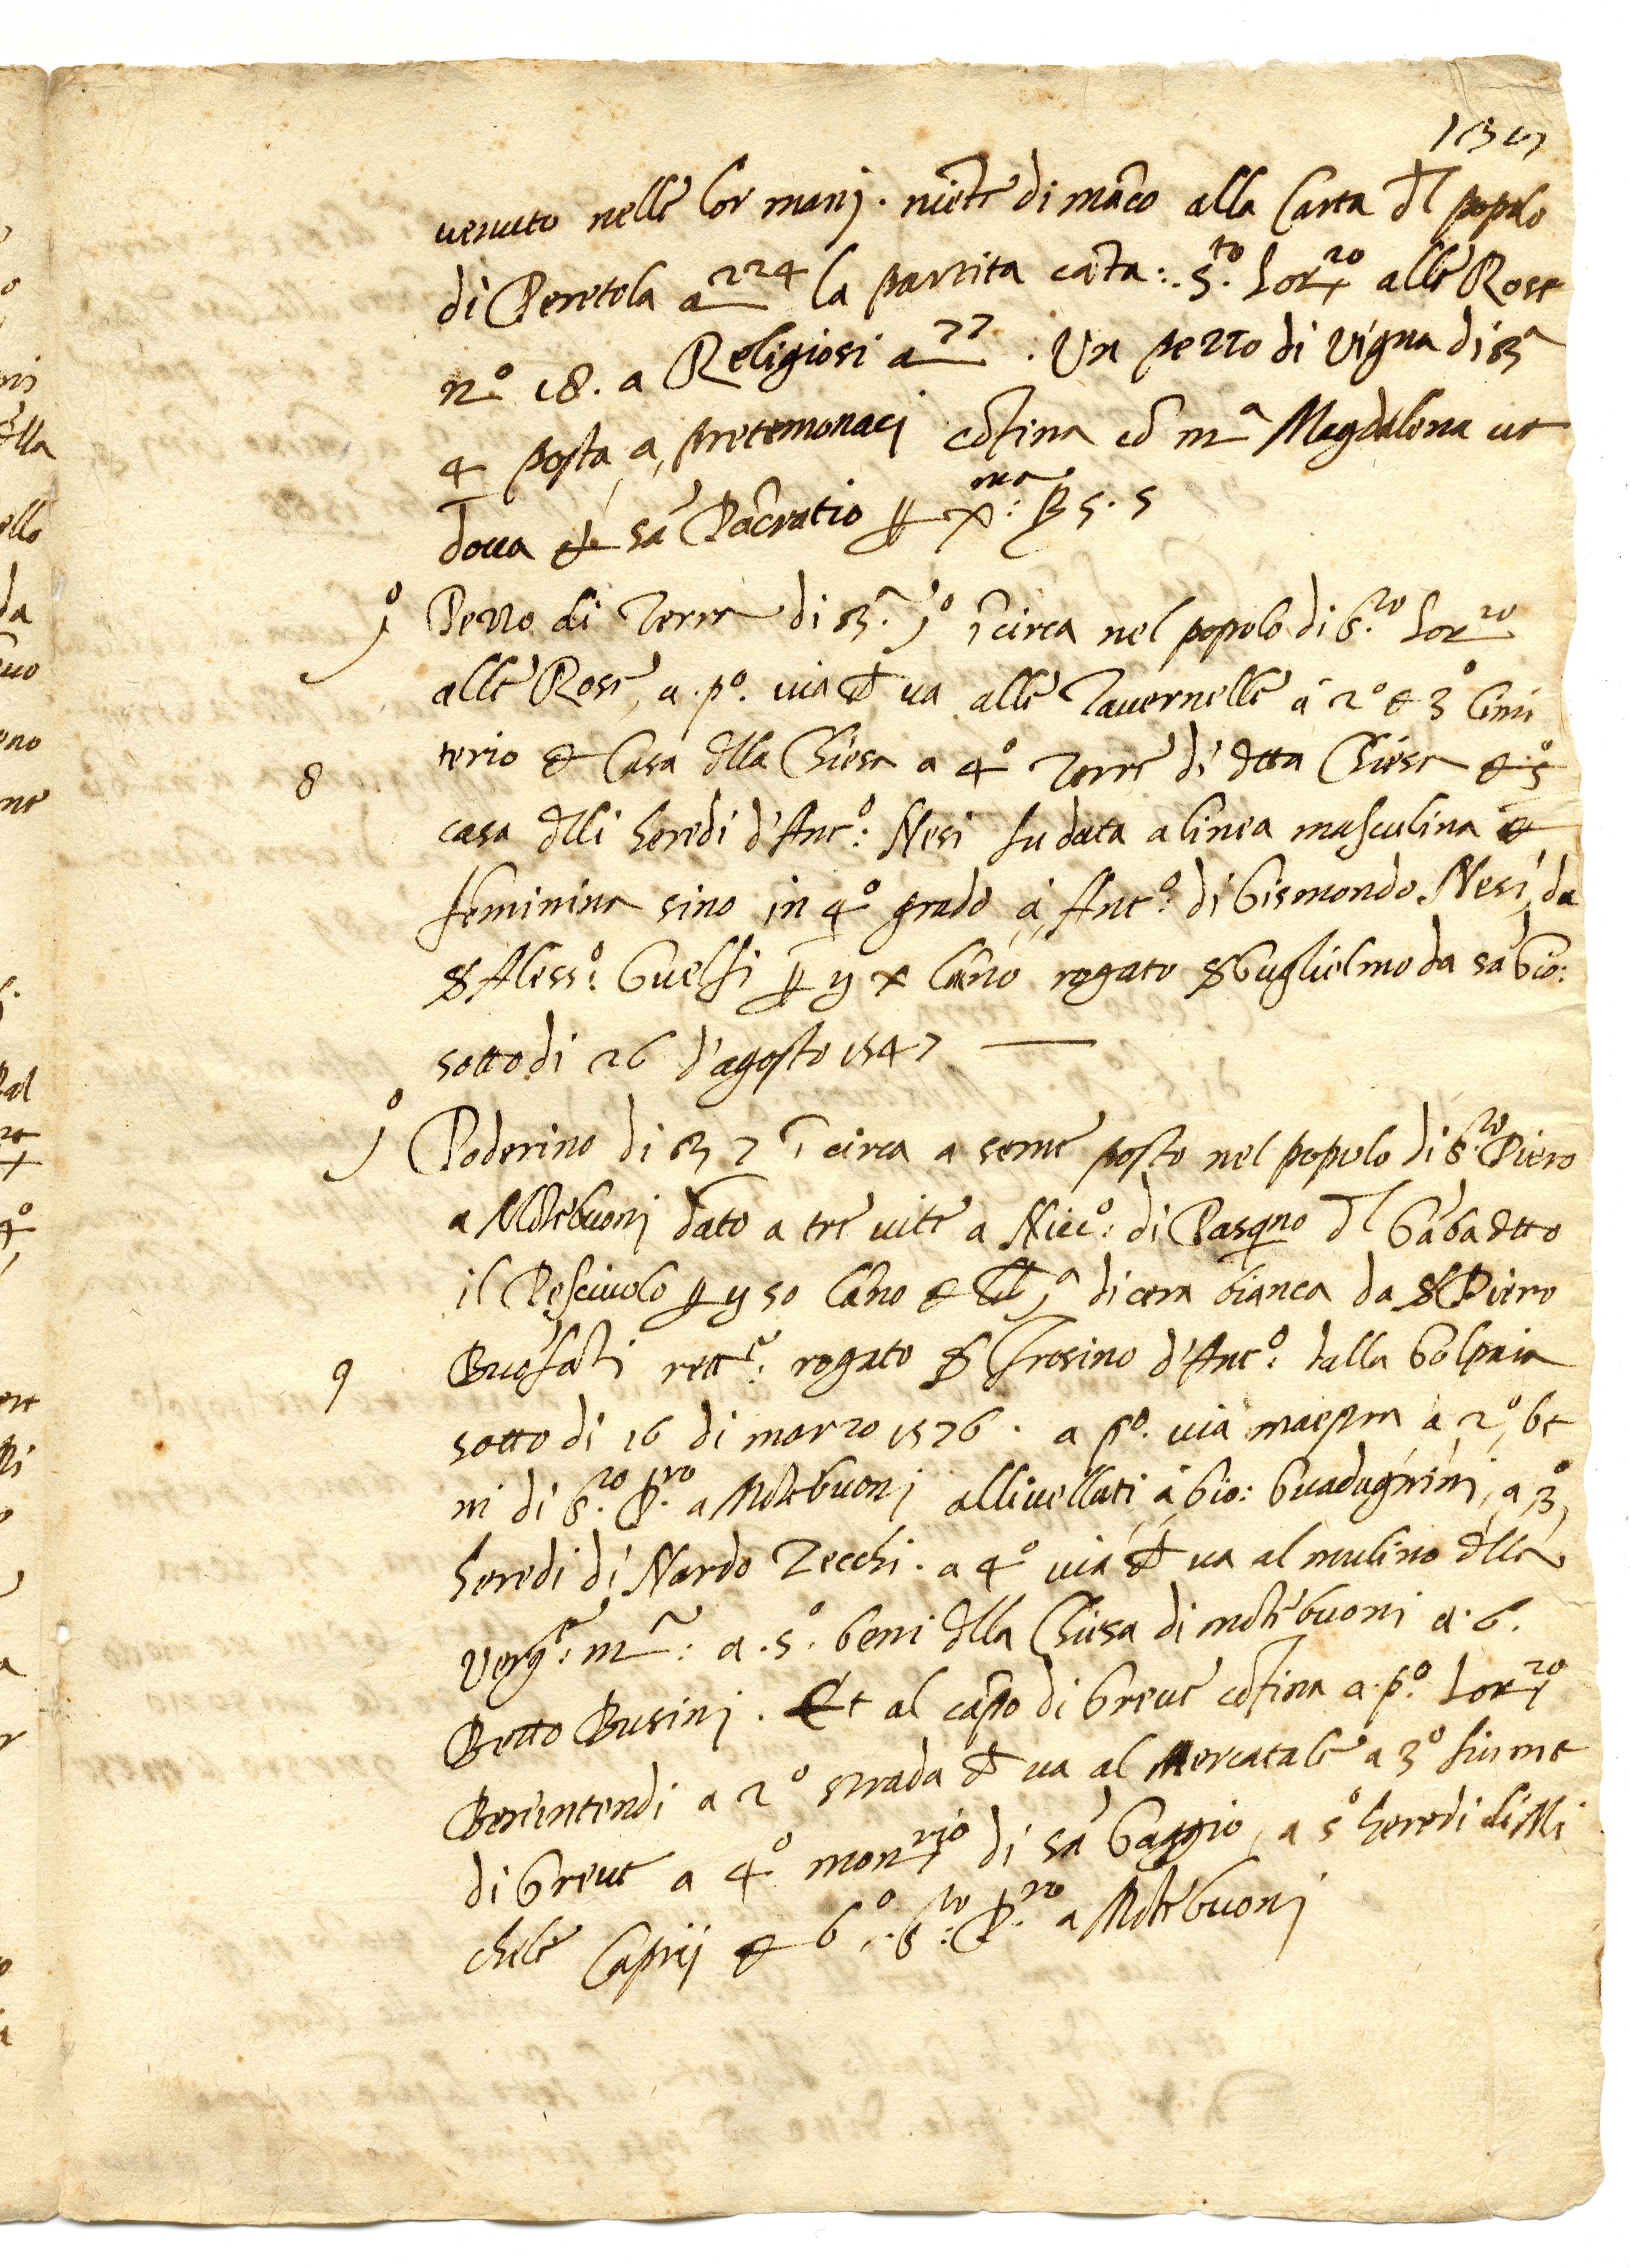 venuto nelle lor manj. niẽte di mãco alla Carta dl popolo
di Peretola a 224 la partita cãta: S.to Lorzo alle Rose
n.o 18. a Religiosi a 77. Un pezzo di vigna di
4 posta a, pretemonaci cõfina cõ m.a Magdalena ve
dova et sã Pãcratio
jo Pezzo di Terra di jo ĩ circa nel popolo di S.to Lorzo
alle Rose, a. po. via ch va alle Tavernelle à 2o et 3o Cimi
8
terio et Casa dlla Chiesa a 4o Terre di dtta Chiesa et 5o
casa dlli heredi d'Anto: Nesi fu data a linea masculina et
feminina sino in 4o grado à, Anto: di Gismondo Nesi, da
Ser Alesso: Guelfi p lãno rogato Ser Guglielmo da sã Gio:
sotto di 26 d'agosto 1547
jo Poderino di 7 ĩ circa a seme posto nel popolo di S.to Piero
a Mõtebuonj dato a tre vite a Nicco: di Pasqno dl Gãba dtto
il Pesciuolo p 50 lãno et di cera bianca da Ser Piero
9
Buofãti rettre: rogato Ser Frosino d'Anto: dalla Volpaia
sotto di 16 di marzo 1576. a po. via maestra a 2o, be
ni di S.to P.ro a Mõtebuonj allivellati, à Gio: Guadagnini, a 3o,
heredi di Nardo Zecchi. a 4o via ch va al mulino dlla
Verge: m: a. 5o. beni dlla Chiesa di mõtebuoni a. 6.
Betto Businj. Et al cãpo di Greve cõfina a. po. Lorzo
Berintendi a 2o strada ch va al Mercatale a 3o fiume
di Greve a 4o monrio di sã Gaggio, a 5o heredi di Mi
chele Caprij et 6o. S.to P.ro a Mõtebuonj